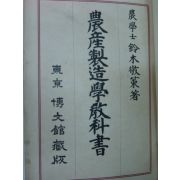 農學士 鈴木敬策著
農産製造學教科書
東京 博文館藏版